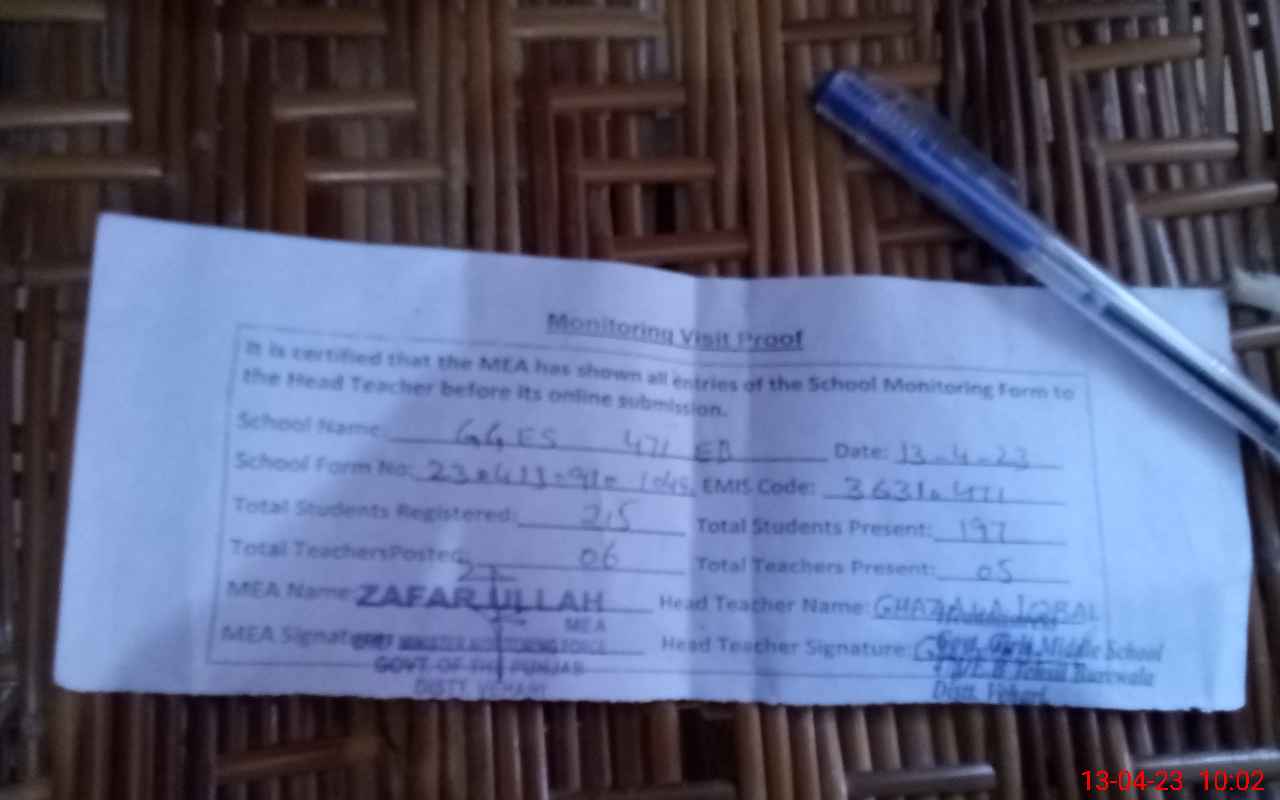 Monitoring Visit Proof
It is certified that the MEA has shown all entries of the School Monitoring Form to
the Head Teacher before its online submission.
School Name: GGES 471 EB Date: 13-4-23
School Form No: EMIS Code: 3631.471
Total Students Registered: 215 Total Students Present: 197
Total TeachersPosted: 06 Total Teachers Present: 05
MEA Name: ZAFAR ULLAH Head Teacher Name: GHAZALA IQBAL
MEA
MEA Signature: Head Teacher Signature:
CHIEF MINISTER MONITORING FORCE
GOVT. OF THE PUNJAB
DISTT. VEHARI
Govt. Girls Middle School
E.B Tehsil Burewala
Distt. Vehari
13-04-23 10:02